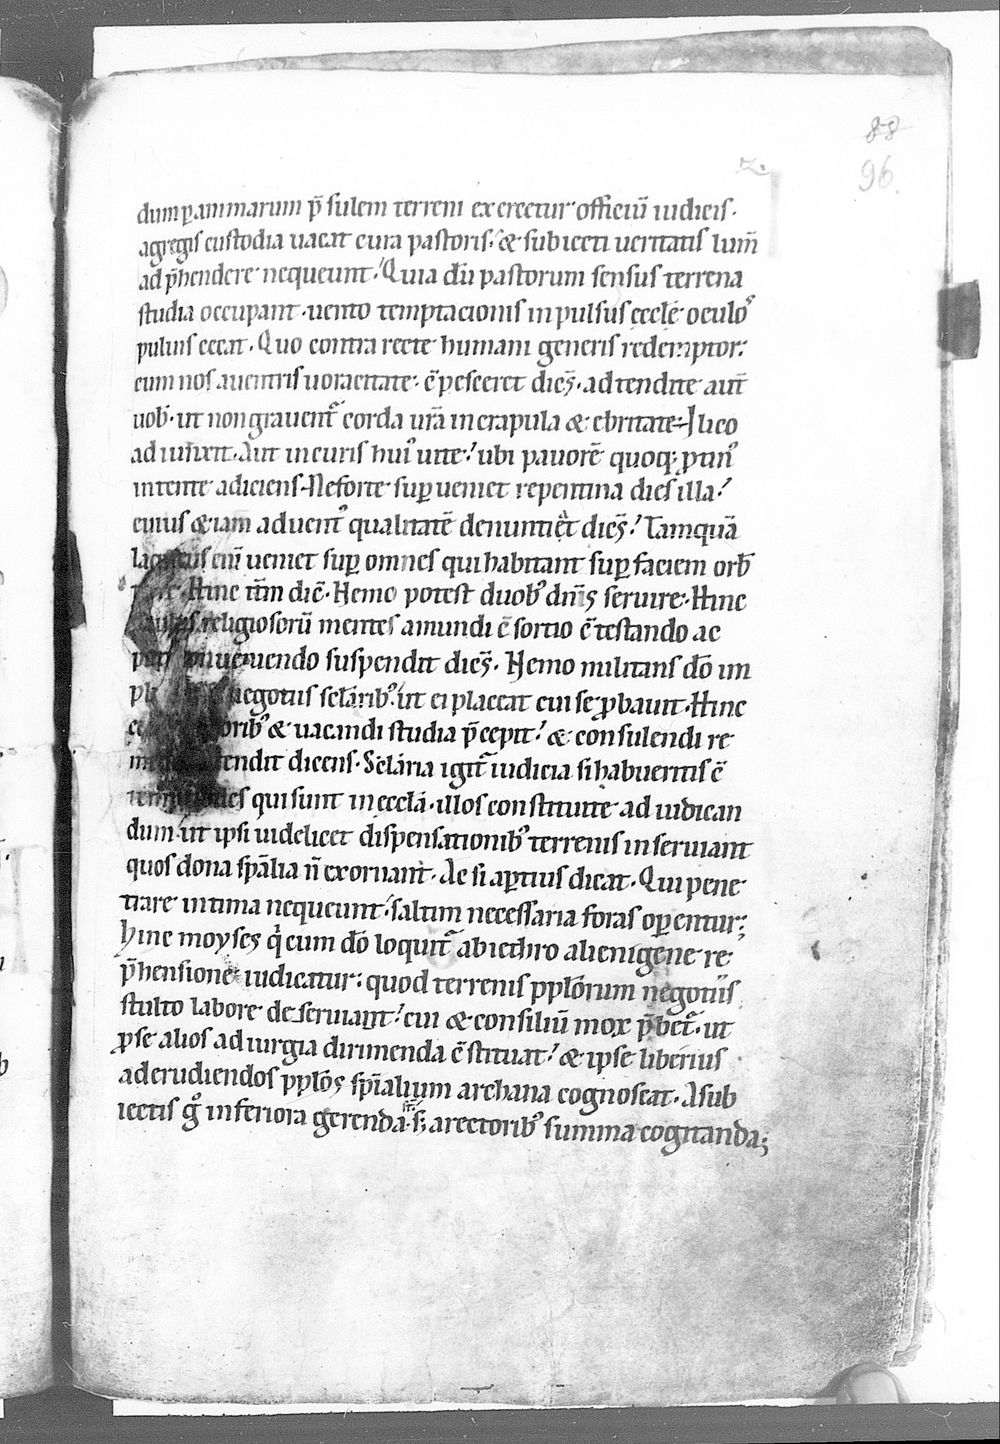 88
96.
dum p̱ animarum p̄sulem terreni exercetur officiū iudicis·
agregis custodia uacat cura pastoris· & subiecti ueritatis lum̄
ad p̄hendere nequeunt· Quia dū pastorum sensus terrena
studia occupant· uento temptacionis inpulsus eccl̄e oculoꝰ
puluis cecat· Quo contra recte humani generis redemptor·
cum nos auentris uoracitate· c̄pesceret dicēs· adtendite aut̄
uob̄· ut non grauent᷑ corda ur̄a in crapula & ebritate· Ilico
adiunxit· Aut in curis huiꝰ uite· ubi pauorē quoq; ꝓtinꝰ
intente adiciens· Ne forte suꝑueniet repentina dies illa·
cuius & iam aduentꝰ qualitatē denuntiet dicēs· Tamquā
eni᷑ ueniet suꝑ omnes qui habitant suꝑ faciem orb̄
Hinc itm̄ dic̄· Nemo potest duobꝰ dn̄is seruire· Hinc
religiosorū mentes amundi c̄sortio c̄testando ac
ueniendo suspendit dicēs· Nemo militans dō im
pli negotiis sclāribꝰ· ut ei placeat cui se ꝓbauit· Hinc
oribꝰ & uacandi studia p̄cepit· & consulendi re
tendit dicens· Sclāria igit᷑ iudicia si habueritis c̄
qui sunt in ecclā· illos constituite ad iudican
dum· ut ipsi uidelicet dispensationibꝰ terrenis inseruiant
quos dona sp̄alia n̄ exornant· Ac si aꝑtius dicat· Qui pene
trare intima nequeunt· saltim necessaria foras oꝑentur;
hinc moyses q̇ cum dō loquit᷑ abiethro alienigene re
p̄hensione iudicatur· quod terrenis pplōrum negotiis
stulto labore deseruiant· cui & consiliū mox p̄bet᷑· ut
ꝓse alios ad iurgia dirimenda c̄stituat· & ipse liberius
ad erudiendos pplōs sp̄ialium archana cognoscat· Asub
iectis gͦ inferiora gerenda s̄t· s; arectoribꝰ summa cogitanda;